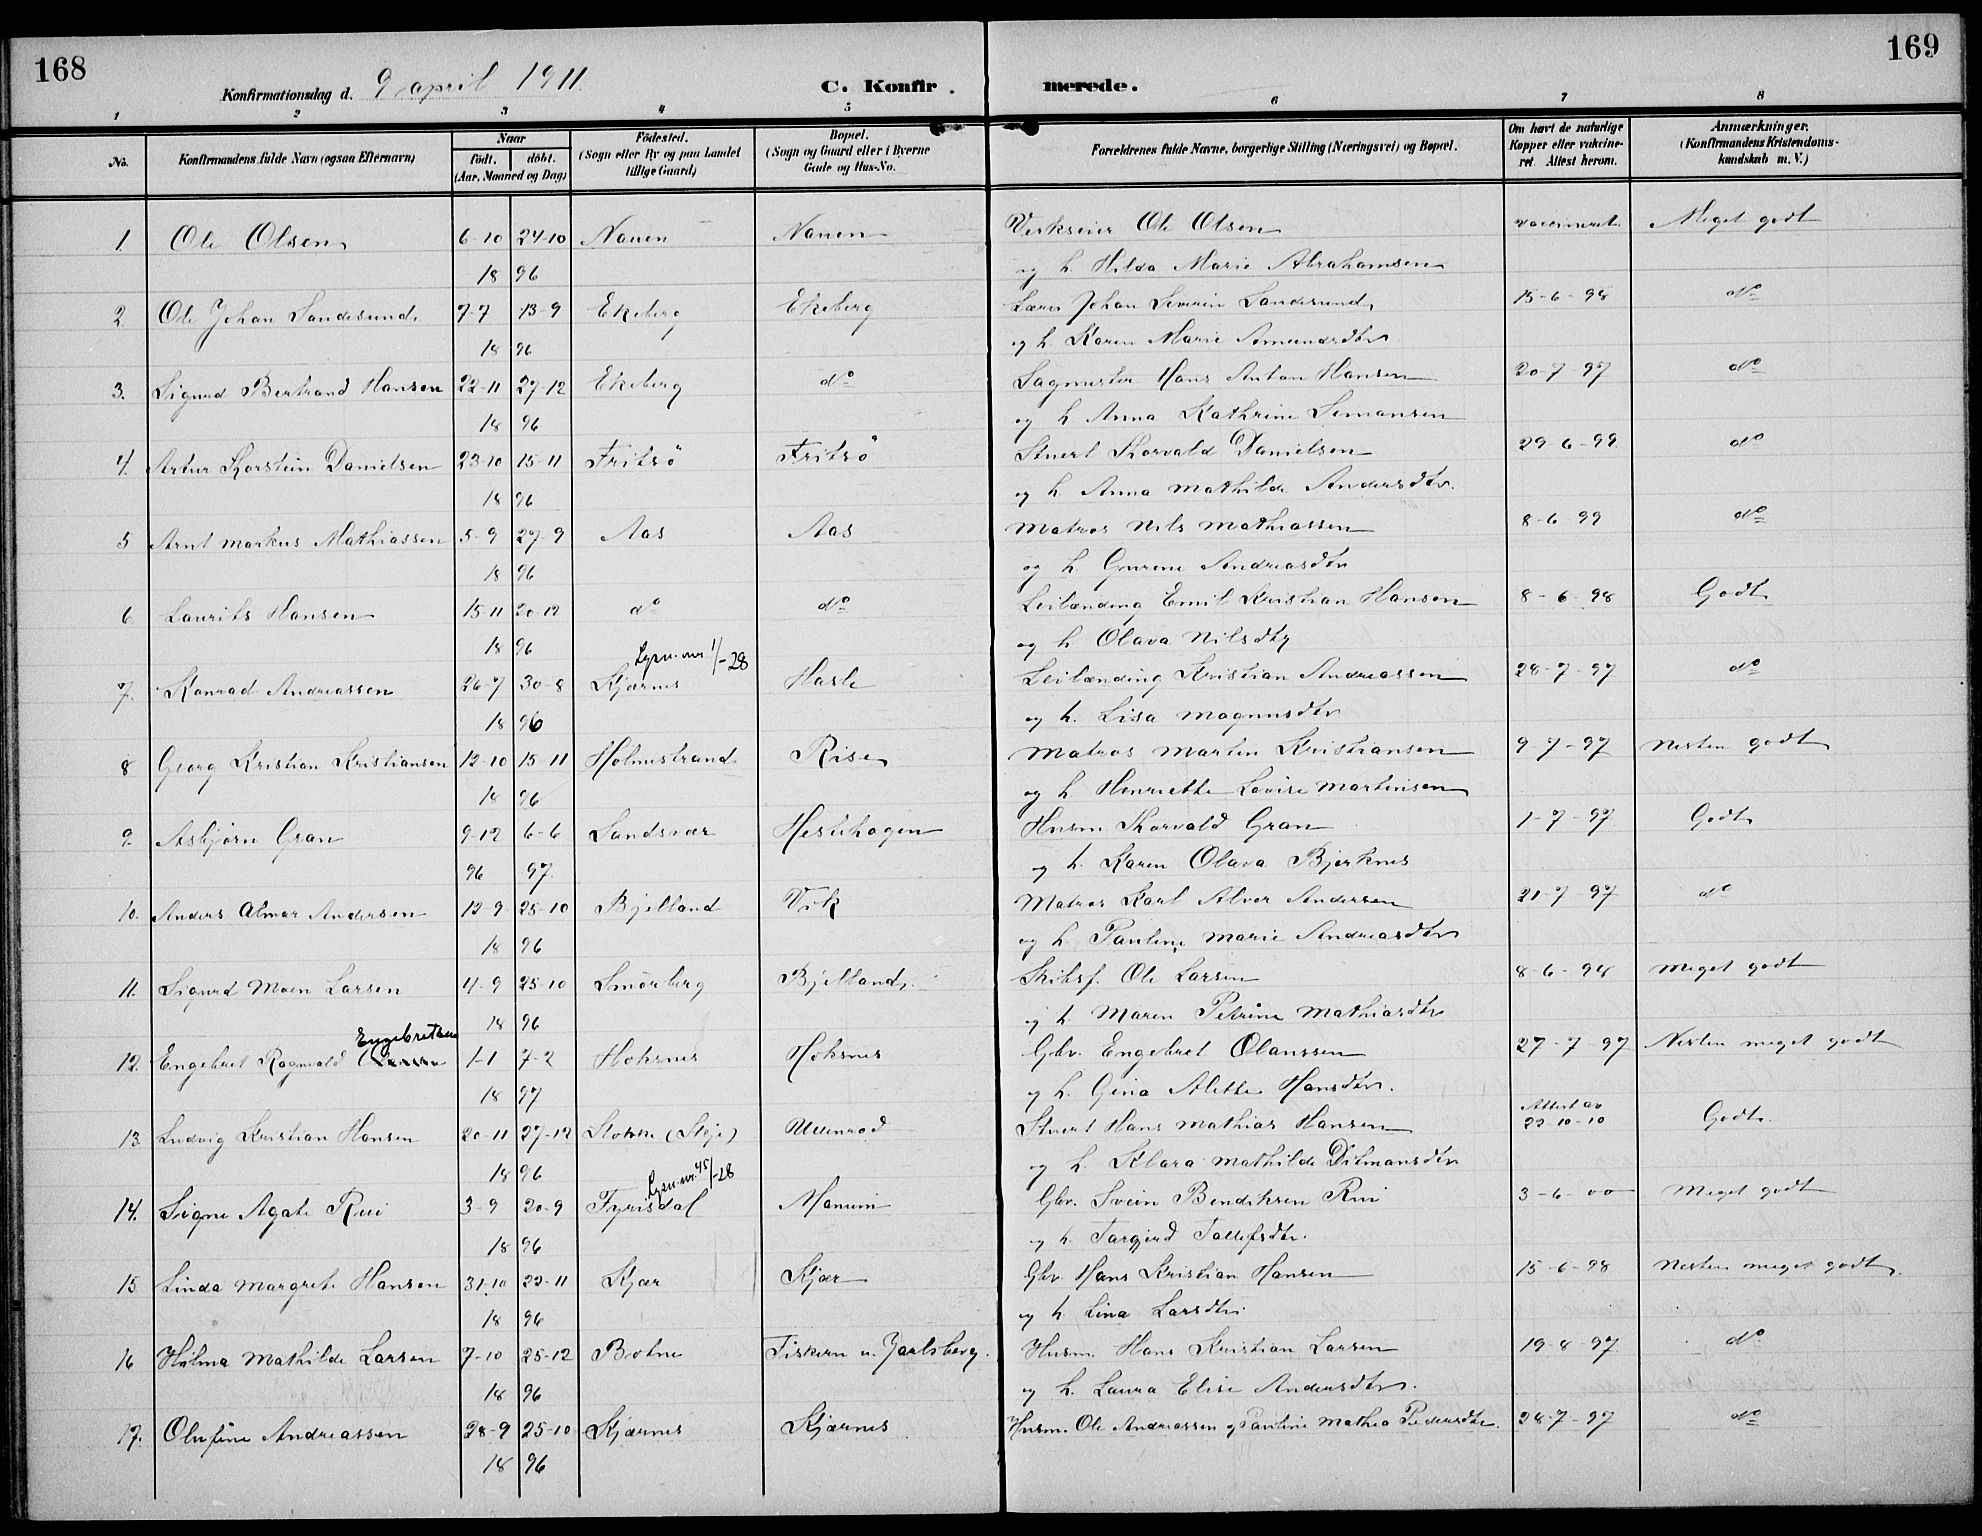 168
Konfirmationsdag d. 9 april 1911.
C. Konfirmerede.
169
1 2 3 4 5 6 7 8
No.
Konfirmandens fulde Navn (ogsaa Efternavn)
Naar
født. døbt.
(Aar, Maaned og Dag)
Fødested.
(Sogn eller By og paa Landet
tillige Gaard)
Bopæl.
(Sogn og Gaard eller i Byerne
Gade og Hus-No.
Forældrenes fulde Navne, borgerlige Stilling (Næringsvei) og Bopæl.
Om havt de naturlige
Kopper eller vakcine-
ret. Attest herom.
Anmærkninger.
(Konfirmandens Kristendoms-
kundskab m. V.)
1. Ole Olsen 6-10 24-10 Nauen Nauen Verkseier Ole Olsen vaccineret. Meget godt
18 96 og h. Hilda Marie Abrahamsen
2 Ole Johan Sandesund 7-7 13-9 Ekeberg Ekeberg Lærer Johan Severin Sandesund 15-6-98 do
18 96 og h. Karen Marie Amundsdtr
3. Sigurd Bertrand Hansen 22-11 27-12 Ekeberg do Sagmester Hans Anton Hansen 20-7-97 do
18 96 og h Anna Kathrine Simonsen
4. Artur Thorstein Danielsen 23-10 15-11 Fritsö Fritsö Stuert Thorvald Danielsen 29-6-99 do
18 96 og h. Anna Mathilde Andersdtr.
5 Arnt Markus Mathiassen 5-9 27-9 Aas Aas Matros Nils Mathiassen 8-6-99 do
18 96 og h Gurine Andreasdtr
6 Laurits Hansen 15-11 20-12 do do Leilænding Emil Kristian Hansen 8-6-98 Godt
18 96 og h Olava Nilsdtr
Lysn. nr 1/-28
7. Konrad Andreassen 26-7 30-8 Skjærnes Hasle Leilænding Kristian Andreassen 28-7-97 do
18 96 og h. Lisa Magnusdtr
8 Georg Kristian Kristiansen 12-10 15-11 Holmestrand Rise Matros Martin Kristiansen 9-7-97 Nesten godt
18 96 og h Henriette Lovise Martinsen
9. Asbjørn Gran 9-12 6-6 Sandsvær Hestehagen Husm. Thorvald Gran 1-7-97 Godt
96 97 og h. Karen Olava Bjerknes
10. Anders Almar Andersen 12-9 25-10 Bjelland Vik Matros Karl Alver Andersen 21-7-97 do
18 96 og h. Pauline Marie Andreasdtr
11. Sigurd Moen Larsen 4-9 25-10 Smörberg Bjelland Skibsf. Ole Larsen 8-6-98 Meget godt
18 96 og h Maren Petrine Mathiasdtr
Engebretsen
12. Engebret Ragnvald 1-1 7-2 Holsnes Holsnes Gbr. Engebret Olaussen 27-7-97 Nesten meget godt
18 97 og h. Gina Alette Hansdtr.
13. Ludvig Kristian Hansen 20-11 27-12 Stokke (Skje) Unnrød Stuert Hans Mathias Hansen Attest av 22-10-10 Godt.
18 96 og h. Klara Mathilde Ditmansdtr
Lysn. nr. 45/-28
14. Signe Agate Rui 3-9 20-9 Fyrisdal Manum Gbr. Svein Bendiksen Rui 3-6-00 Meget godt
18 96 og h. Targjerd Tallefsdtr.
15 Linda Margrete Hansen 31-10 22-11 Skjær Skjær Gbr. Hans Kristian Hansen 15-6-98 Nesten meget godt.
18 96 og h Lina Larsdtr.
16 Hilma Mathilde Larsen 7-10 25-12 Botne Fiskern u. Jarlsberg. Husm. Hans Kristian Larsen 19-8-97 do
18 96 og h. Laura Elise Andersdtr.
17. Olufine Andreassen 28-9 25-10 Skjærnes Skjærnes Husm. Ole Andreassen og Pauline Mathea Pedersdtr. 28-7-97 do
18 96